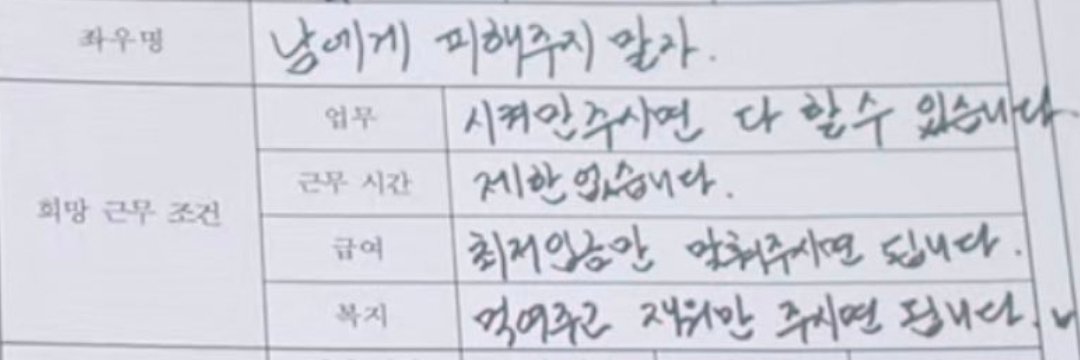 좌우명 남에게 피해주지 말자.
희망 근무 조건
업무 시켜만주시면 다 할 수 있습니다.
근무 시간 제한 없습니다.
급여 최저임금만 맞춰주시면 됩니다.
복지 먹여주고 재워만 주시면 됩니다.